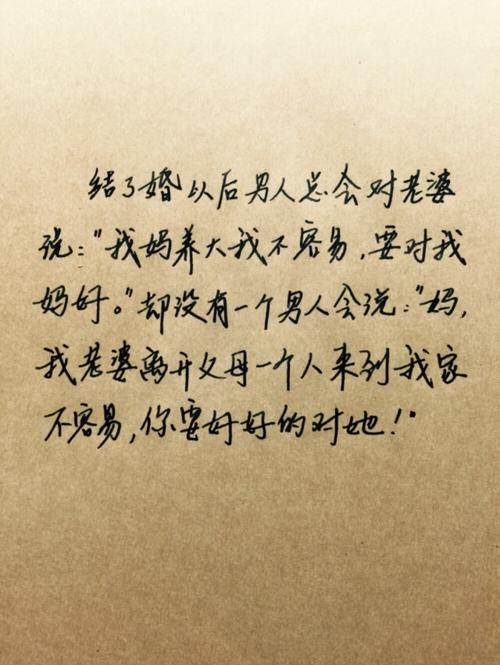 结了婚以后男人总会对老婆
说:"我妈养大我不容易,要对我
妈好。"却没有一个男人会说:"妈,
我老婆离开父母一个人来到我家
不容易,你要好好的对她!"